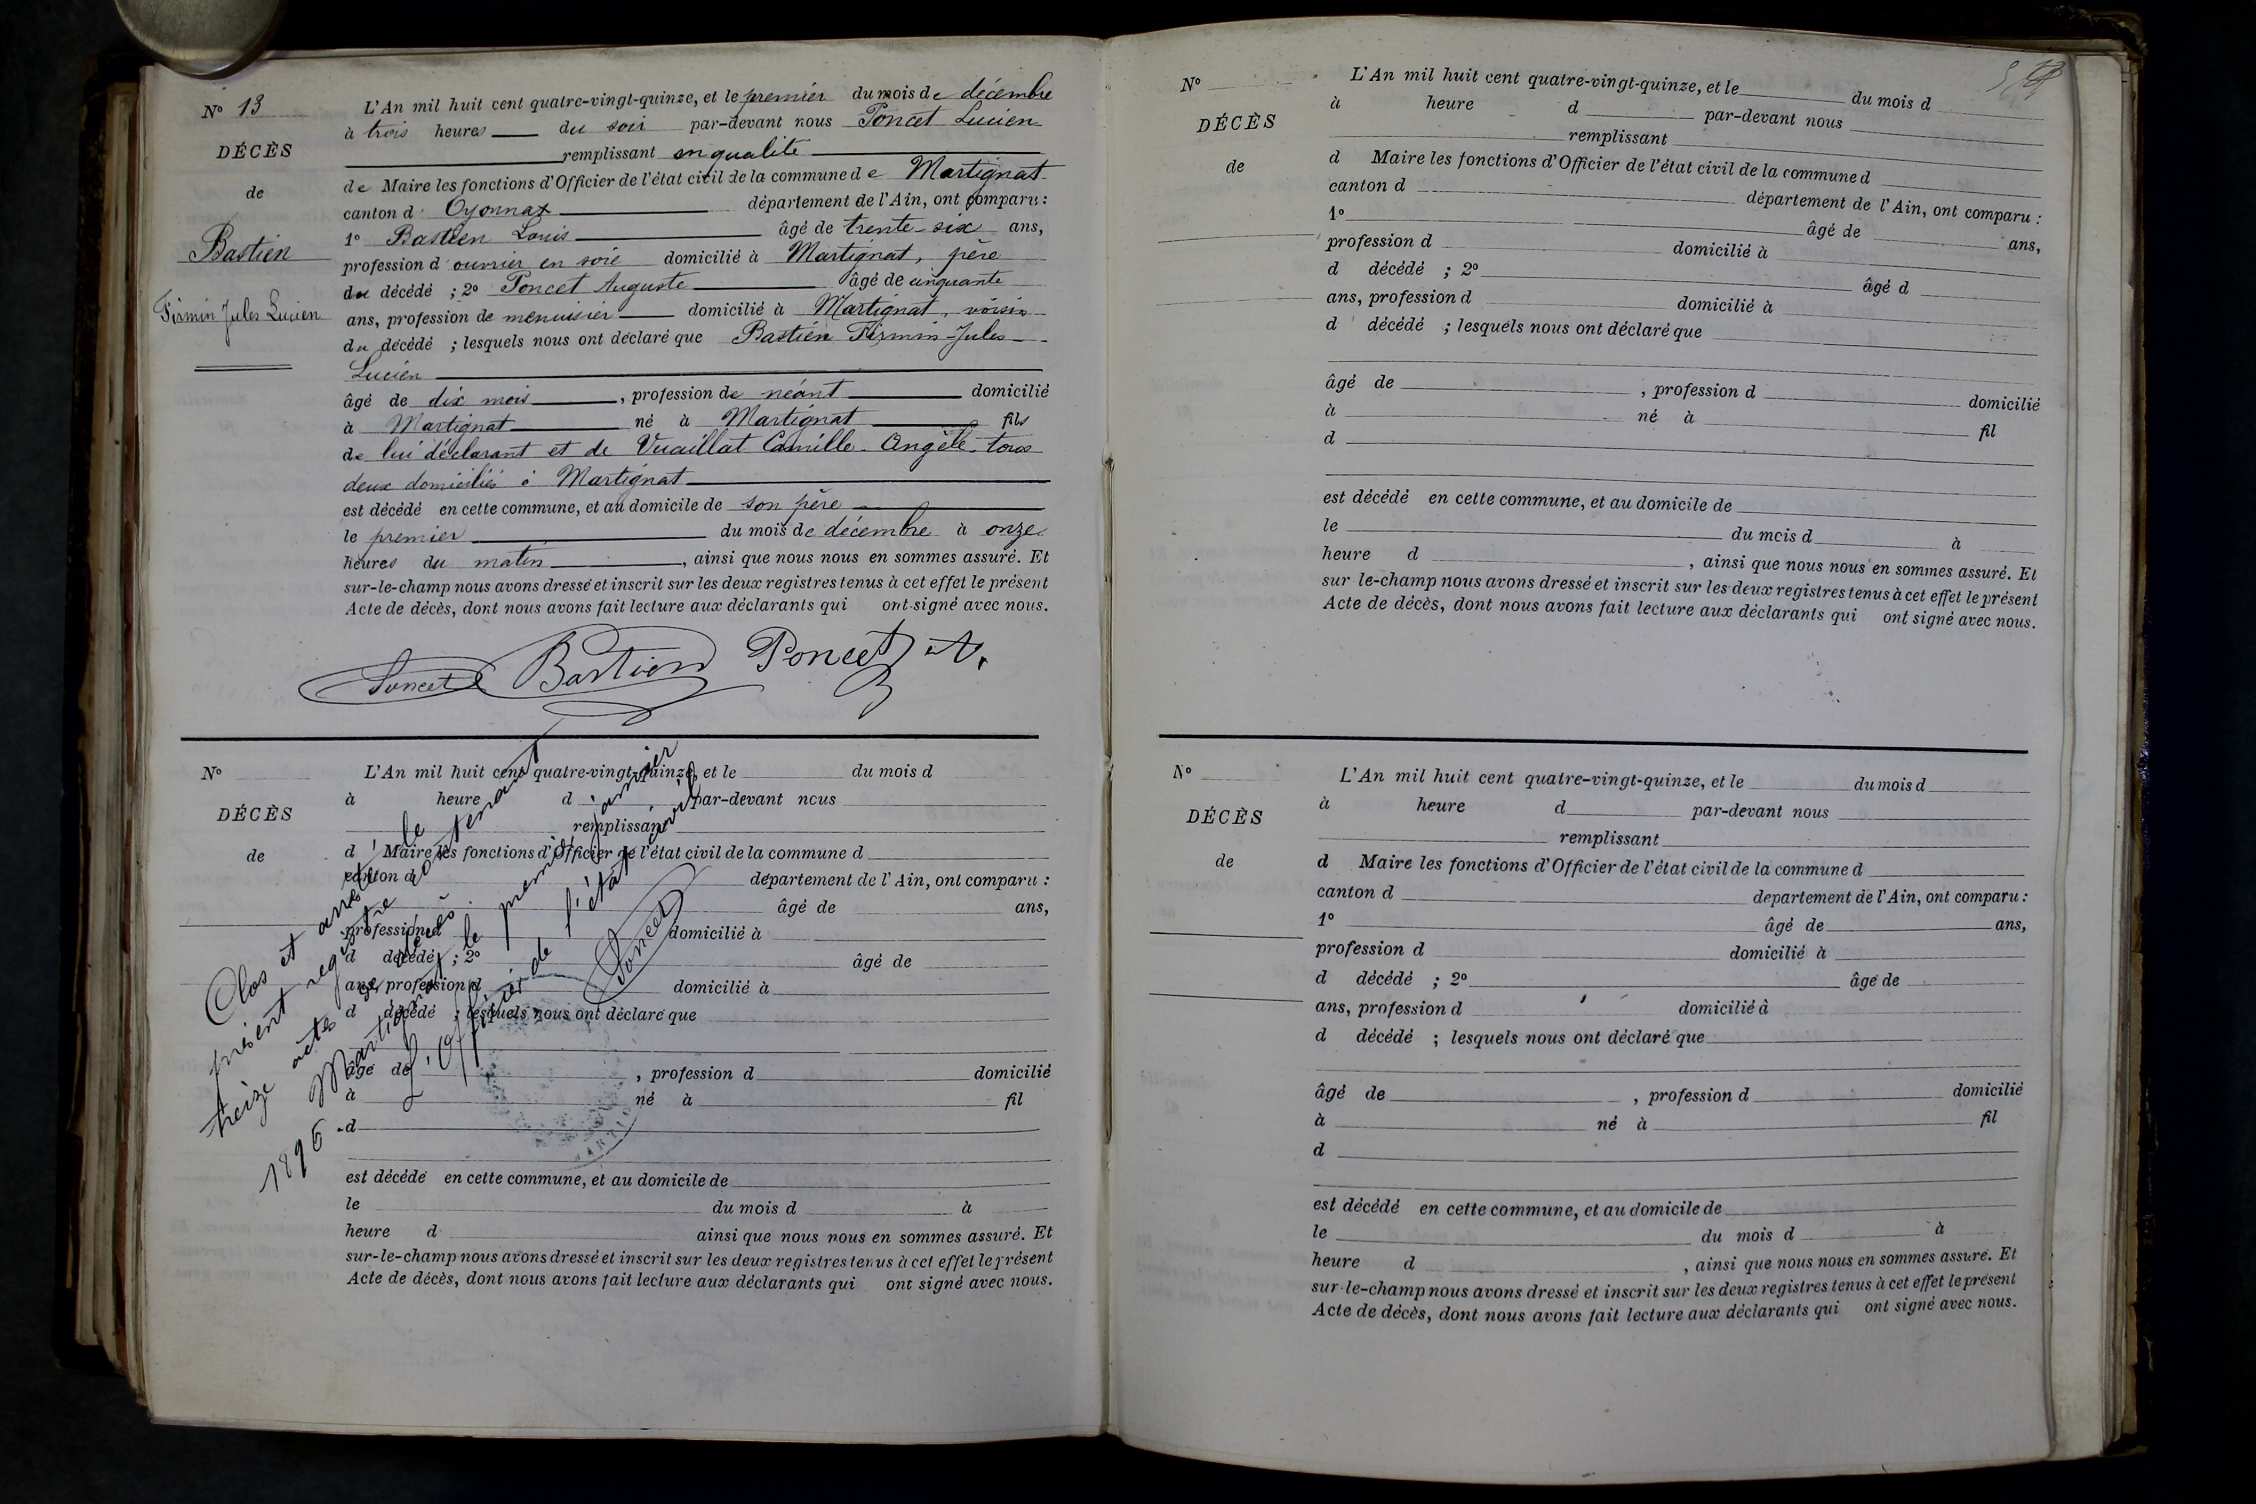 Nº 13
DÉCÈS
de
Bastien
Firmin Jules Lucien
L'An mil huit cent quatre-vingt-quinze, et le premier du mois de décembre
à trois heures du soir par-devant nous Poncet Lucien
remplissant en qualité
de Maire les fonctions d'Officier de l'état civil de la commune de Martignat
canton d' Oyonnax département de l'Ain, ont comparu :
1º Bastien Louis âgé de trente-six ans,
profession d'ouvrier en soie domicilié à Martignat, père
du décédé ; 2º Poncet Auguste âgé de cinquante
ans, profession de menuisier domicilié à Martignat, voisin
du décédé ; lesquels nous ont déclaré que Bastien Firmin-Jules-
Lucien
âgé de dix mois, profession de néant domicilié
à Martignat né à Martignat fils
de lui déclarant et de Vuaillat Camille-Angèle-tous
deux domiciliés à Martignat
est décédé en cette commune, et au domicile de son père
le premier du mois de décembre à onze
heures du matin, ainsi que nous nous en sommes assuré. Et
sur-le-champ nous avons dressé et inscrit sur les deux registres tenus à cet effet le présent
Acte de décès, dont nous avons fait lecture aux déclarants qui ont signé avec nous.
Poncet Bastien Poncet A.
Nº
DÉCÈS
de
L'An mil huit cent quatre-vingt-quinze, et le du mois d
à heure d par-devant nous
remplissant
d Maire les fonctions d'Officier de l'état civil de la commune d
canton d département de l'Ain, ont comparu :
âgé de ans,
profession d domicilié à
d décédé ; 2º âgé de
ans, profession d domicilié à
d décédé ; lesquels nous ont déclaré que
âgé de , profession d domicilié
à né à fil
d
est décédé en cette commune, et au domicile de
le du mois d à
heure d ainsi que nous nous en sommes assuré. Et
sur-le-champ nous avons dressé et inscrit sur les deux registres tenus à cet effet le présent
Acte de décès, dont nous avons fait lecture aux déclarants qui ont signé avec nous.
Clos et arrêté le
présent registre contenant
treize actes de décès.
Martignat le premier janvier
1896. L'Officier de l'état civil,
Poncet
Nº
DÉCÈS
de
L'An mil huit cent quatre-vingt-quinze, et le du mois d
à heure d par-devant nous
remplissant
d Maire les fonctions d'Officier de l'état civil de la commune d
canton d département de l'Ain, ont comparu :
1º âgé de ans,
profession d domicilié à
d décédé ; 2º âgé d
ans, profession d domicilié à
d décédé ; lesquels nous ont déclaré que
âgé de , profession d domicilié
à né à fil
d
est décédé en cette commune, et au domicile de
le du mois d à
heure d , ainsi que nous nous en sommes assuré. Et
sur le-champ nous avons dressé et inscrit sur les deux registres tenus à cet effet le présent
Acte de décès, dont nous avons fait lecture aux déclarants qui ont signé avec nous.
Nº
DÉCÈS
de
L'An mil huit cent quatre-vingt-quinze, et le du mois d
à heure d par-devant nous
remplissant
d Maire les fonctions d'Officier de l'état civil de la commune d
canton d departement de l'Ain, ont comparu :
1º âgé de ans,
profession d domicilié à
d décédé ; 2º âgé de
ans, profession d domicilié à
d décédé ; lesquels nous ont déclaré que
âgé de , profession d domicilié
à né à fil
d
est décédé en cette commune, et au domicile de
le du mois d à
heure d , ainsi que nous nous en sommes assuré. Et
sur-le-champ nous avons dressé et inscrit sur les deux registres tenus à cet effet le présent
Acte de décès, dont nous avons fait lecture aux déclarants qui ont signé avec nous.